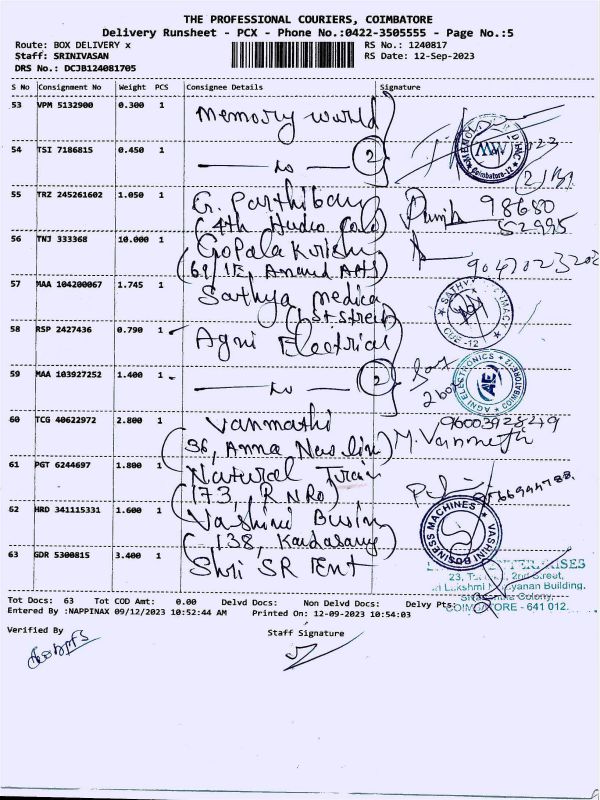 THE PROFESSIONAL COURIERS, COIMBATORE
Delivery Runsheet - PCX - Phone No.:0422-3505555 - Page No.:5
Route: BOX DELIVERY x
RS No.: 1240817
Staff: SRINIVASAN
RS Date: 12-Sep-2023
DRS No.: DCJB124081705
S No Consignment No Weight PCS Consignee Details Signature
53 VPM 5132900 0.300 1 Memory world
54 TSI 7186815 0.450 1 2
MEMORY WORLD INC
MW
Coimbatore-12
55 TRZ 245261602 1.050 1 G. Parthiban
(4th Hudco Colo)
98680
52995
56 TNJ 333368 10.000 1 Gopala Krish
(69/1E, Anand Apts)
57 MAA 104200067 1.745 1 Sathya medica
(1st street)
SATHYA PHARMACY
CBE -12
58 RSP 2427436 0.790 1 Agni Electrical
59 MAA 103927252 1.400 1 2
2 box
AGNI ELECTRONICS
AE
COIMBATORE-12
60 TCG 40622972 2.800 1 Vanmathi
(36, Anna Nas lin)
M. Vanmathi
61 PGT 6244697 1.800 1 Natural Train
(173, R N Ro)
62 HRD 341115331 1.600 1 Vashini Busin
(138, Kandasamy)
VASHINI BUSINESS MACHINES
63 GDR 5300815 3.400 1 Shri SR Ent
ENTERPRISES
23, 2nd Street,
Lakshmi Narayanan Building,
Colony,
COIMBATORE - 641 012.
Tot Docs: 63 Tot COD Amt: 0.00 Delvd Docs: Non Delvd Docs: Delvy Pts:
Entered By :NAPPINAX 09/12/2023 10:52:44 AM Printed On: 12-09-2023 10:54:03
Verified By
Staff Signature